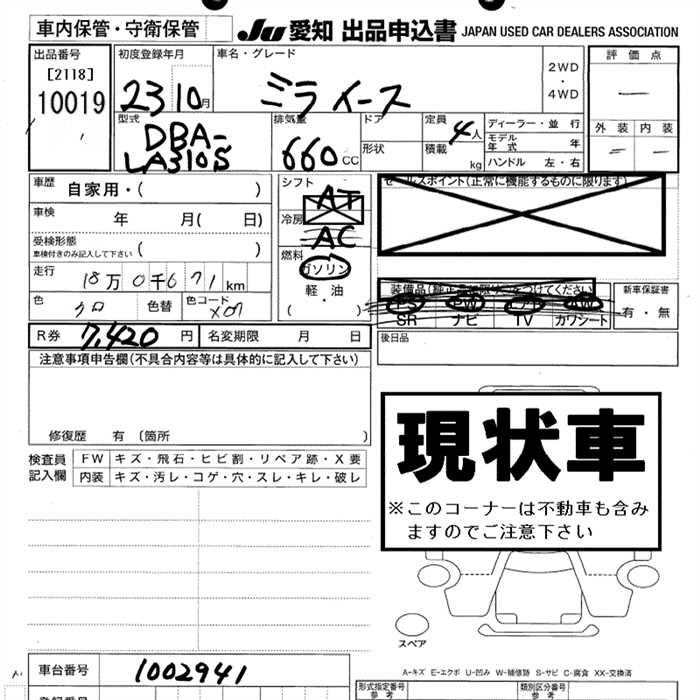 車内保管・守衛保管 JU 愛知 出品申込書 JAPAN USED CAR DEALERS ASSOCIATION
出品番号 初度登録年月 車名・グレード 評価点
[2118] 2WD
10019 23 10月 ミライース ・
4WD
―
型式 排気量 ドア 定員 4人 ディーラー・並行 外装 内装
DBA- モデル年式 年
LA310S 660cc 形状 積載 kg ハンドル 左・右
車歴 自家用・( ) シフト AT セールスポイント(正常に機能するものに限ります)
車検 年 月( 日) 冷房 AC
受検形態
車検付きのみ記入して下さい ( ) 燃料
走行 18万0千671km ガソリン 装備品(純正品に限り○をつけてください) 新車保証書
軽・油 PS PW AW 有・無
色 クロ 色替 色コード X07 ( ) SR ナビ TV カワシート
R券 7,420円 名変期限 月 日 後日品
注意事項申告欄(不具合内容等は具体的に記入して下さい)
修復歴 有 (箇所 )
現状車
※このコーナーは不動車も含み
ますのでご注意下さい
検査員 FW キズ・飛石・ヒビ割・リペア跡・X要
記入欄 内装 キズ・汚レ・コゲ・穴・スレ・キレ・破レ
スペア
A-キズ E-エクボ U-凹み W-補修跡 S-サビ C-腐食 XX-交換済
車台番号 1002941
形式指定番号 参考 類別区分番号 参考
登録番号